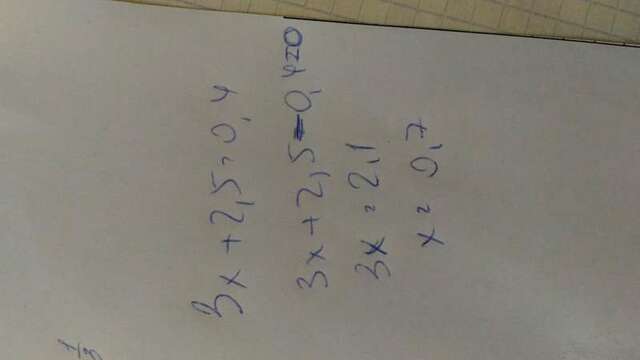 3x + 2,5 = 0,4
3x + 2,5 - 0,4 = 0
3x = 2,1
x = 0,7
1/3